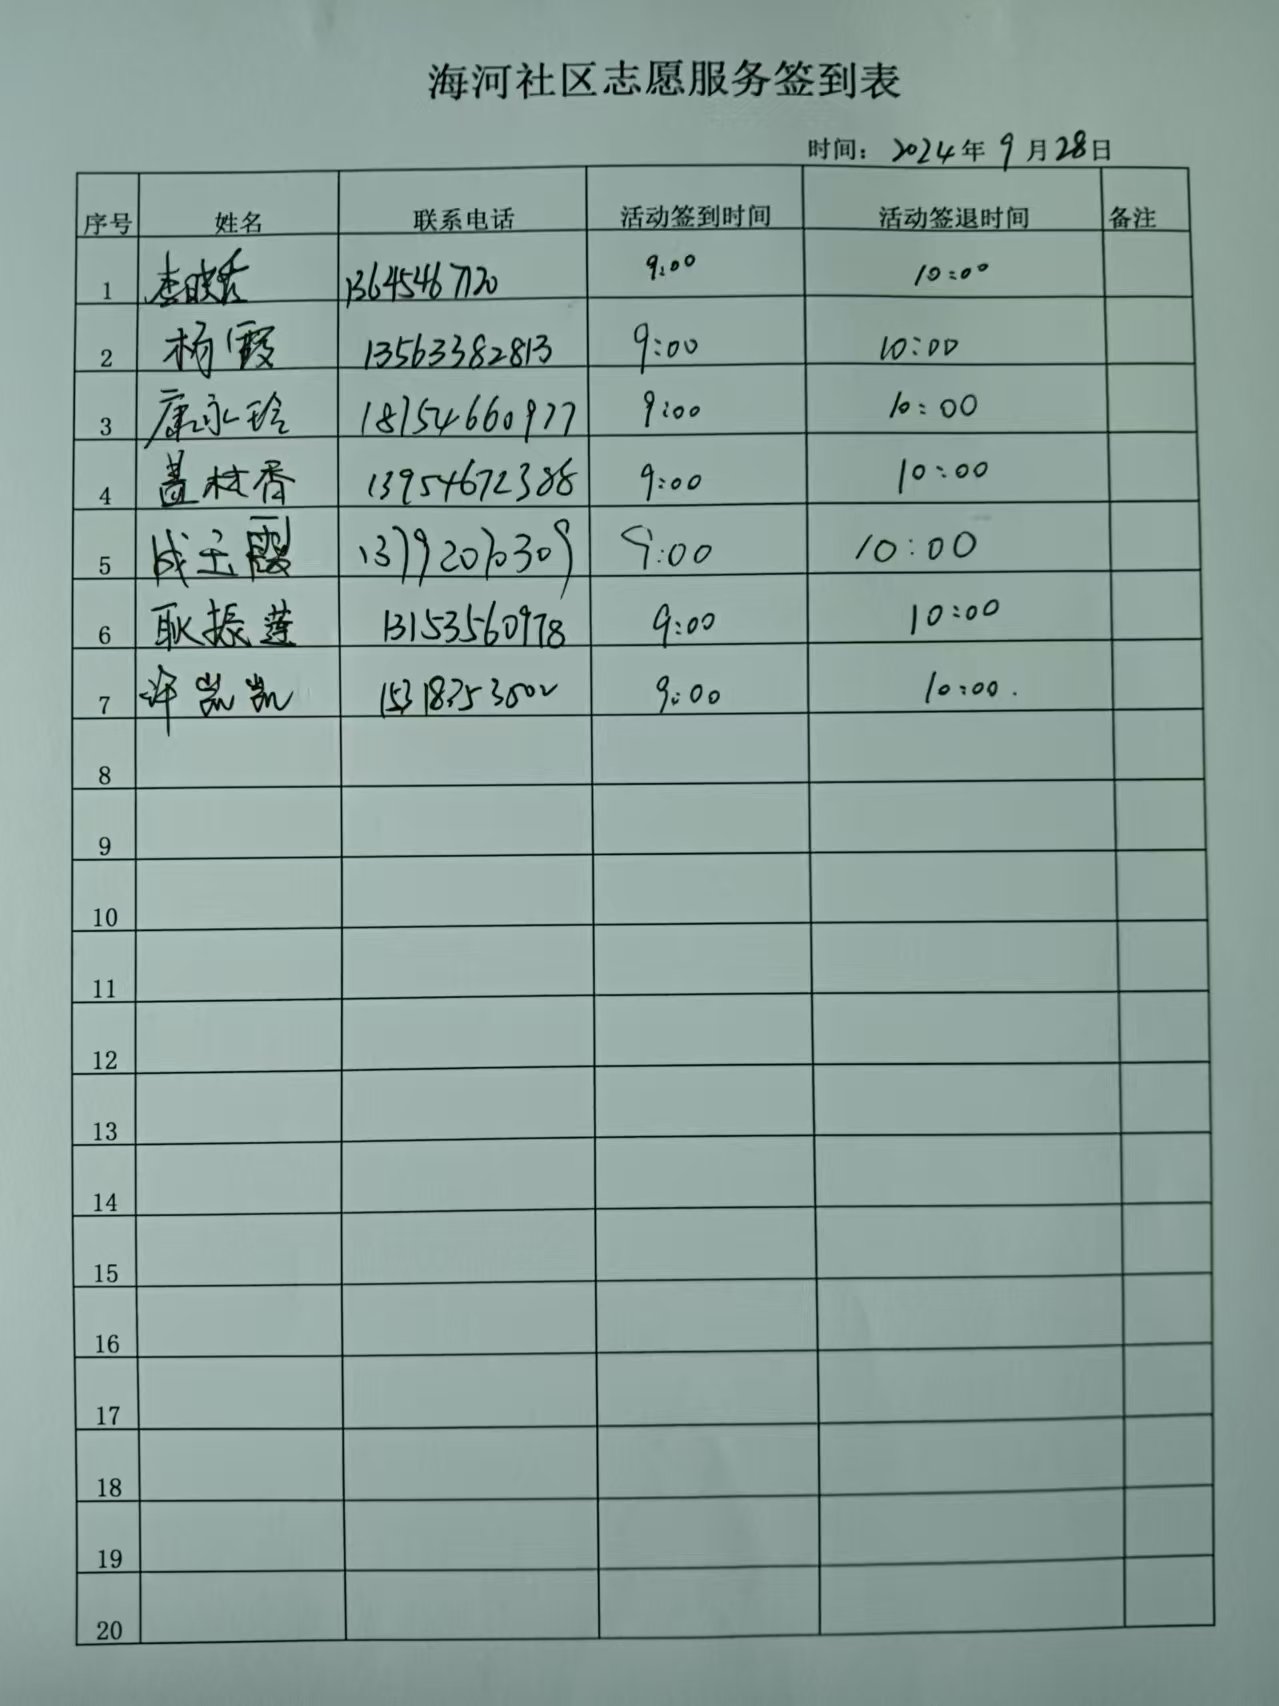 海河社区志愿服务签到表
时间：2024年9月28日
序号 姓名 联系电话 活动签到时间 活动签退时间 备注
1 李映秀 13645467120 9:00 10:00
2 杨霞 13563382813 9:00 10:00
3 康永玲 18754660977 9:00 10:00
4 盖林香 13954672388 9:00 10:00
5 成玉霞 13792070309 9:00 10:00
6 耿振莲 13153560978 9:00 10:00
7 许凯凯 9:00 10:00.
8
9
10
11
12
13
14
15
16
17
18
19
20